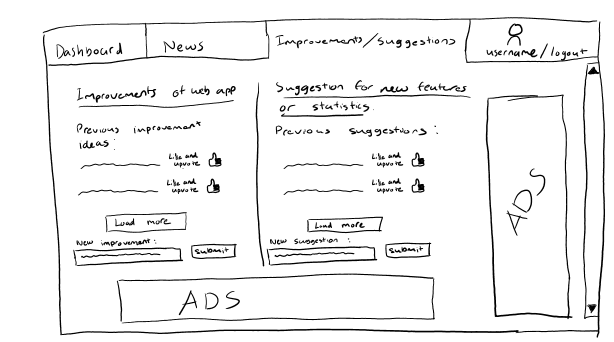 Dashboard
News
Improvements/Suggestions
username/logout
Improvements of web app
Previous improvement
ideas:
Like and
upvote
Like and
upvote
Load more
New improvement:
Submit
Suggestion for new features
or statistics.
Previous suggestions:
Like and
upvote
Like and
upvote
Load more
New Suggestion:
Submit
ADS
ADS